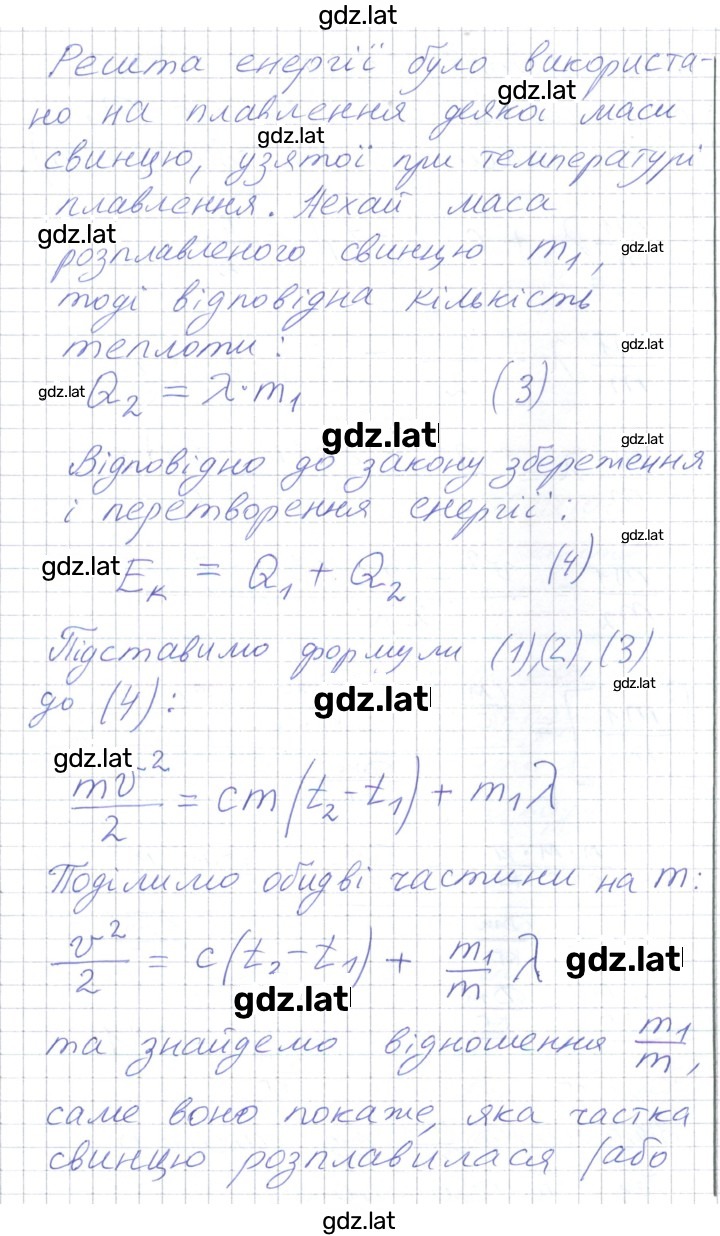 gdz.lat
Решта енергії було використа-
gdz.lat
но на плавлення деякої маси
gdz.lat
свинцю, узятої при температурі
плавлення. Нехай маса
gdz.lat
розплавленого свинцю m₁, gdz.lat
тоді відповідна кількість
теплоти: gdz.lat
gdz.lat Q₂ = λ·m₁ (3)
gdz.lat gdz.lat
Відповідно до закону збереження
і перетворення енергії: gdz.lat
gdz.lat Eк = Q₁ + Q₂ (4)
Підставимо формули (1),(2),(3)
до (4): gdz.lat gdz.lat
gdz.lat
mv²/2 = cm(t₂-t₁) + m₁λ
Поділимо обидві частини на m:
v²/2 = c(t₂-t₁) + m₁/m λ gdz.lat
gdz.lat
та знайдемо відношення m₁/m,
саме воно покаже, яка частка
свинцю розплавилася (або
gdz.lat